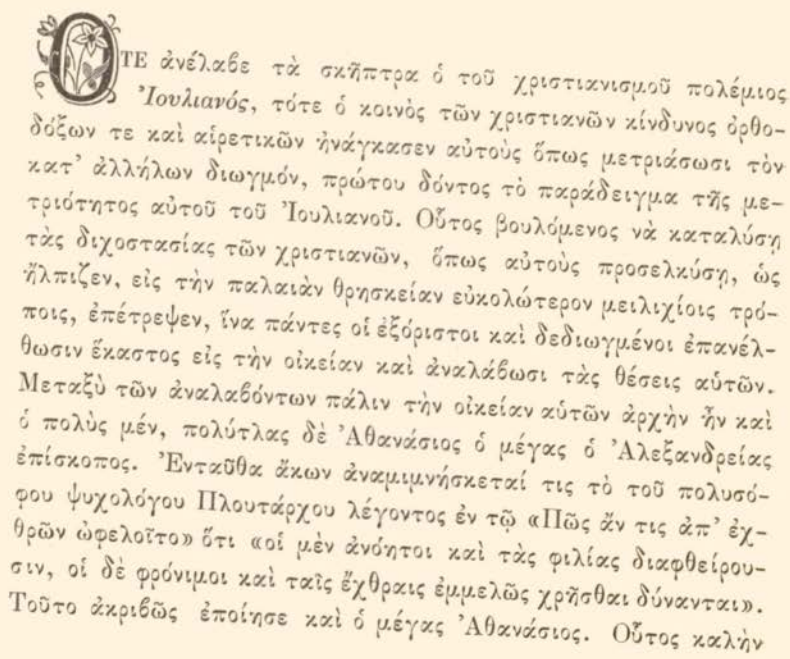 ΟΤΕ ἀνέλαβε τὰ σκῆπτρα ὁ τοῦ χριστιανισμοῦ πολέμιος
Ἰουλιανός, τότε ὁ κοινὸς τῶν χριστιανῶν κίνδυνος ὀρθο-
δόξων τε καὶ αἱρετικῶν ἠνάγκασεν αὐτοὺς ὅπως μετριάσωσι τὸν
κατ’ ἀλλήλων διωγμόν, πρώτου δόντος τὸ παράδειγμα τῆς με-
τριότητος αὐτοῦ τοῦ Ἰουλιανοῦ. Οὗτος βουλόμενος νὰ καταλύσῃ
τὰς διχοστασίας τῶν χριστιανῶν, ὅπως αὐτοὺς προσελκύσῃ, ὡς
ἤλπιζεν, εἰς τὴν παλαιὰν θρησκείαν εὐκολώτερον μειλιχίοις τρό-
ποις, ἐπέτρεψεν, ἵνα πάντες οἱ ἐξόριστοι καὶ δεδιωγμένοι ἐπανέλ-
θωσιν ἕκαστος εἰς τὴν οἰκείαν καὶ ἀναλάβωσι τὰς θέσεις αὑτῶν.
Μεταξὺ τῶν ἀναλαβόντων πάλιν τὴν οἰκείαν αὑτῶν ἀρχὴν ἦν καὶ
ὁ πολὺς μέν, πολύτλας δὲ Ἀθανάσιος ὁ μέγας ὁ Ἀλεξανδρείας
ἐπίσκοπος. Ἐνταῦθα ἄκων ἀναμιμνήσκεταί τις τὸ τοῦ πολυσό-
φου ψυχολόγου Πλουτάρχου λέγοντος ἐν τῷ «Πῶς ἄν τις ἀπ’ ἐχ-
θρῶν ὠφελοῖτο» ὅτι «οἱ μὲν ἀνόητοι καὶ τὰς φιλίας διαφθείρου-
σιν, οἱ δὲ φρόνιμοι καὶ ταῖς ἔχθραις ἐμμελῶς χρῆσθαι δύνανται».
Τοῦτο ἀκριβῶς ἐποίησε καὶ ὁ μέγας Ἀθανάσιος. Οὗτος καλὴν